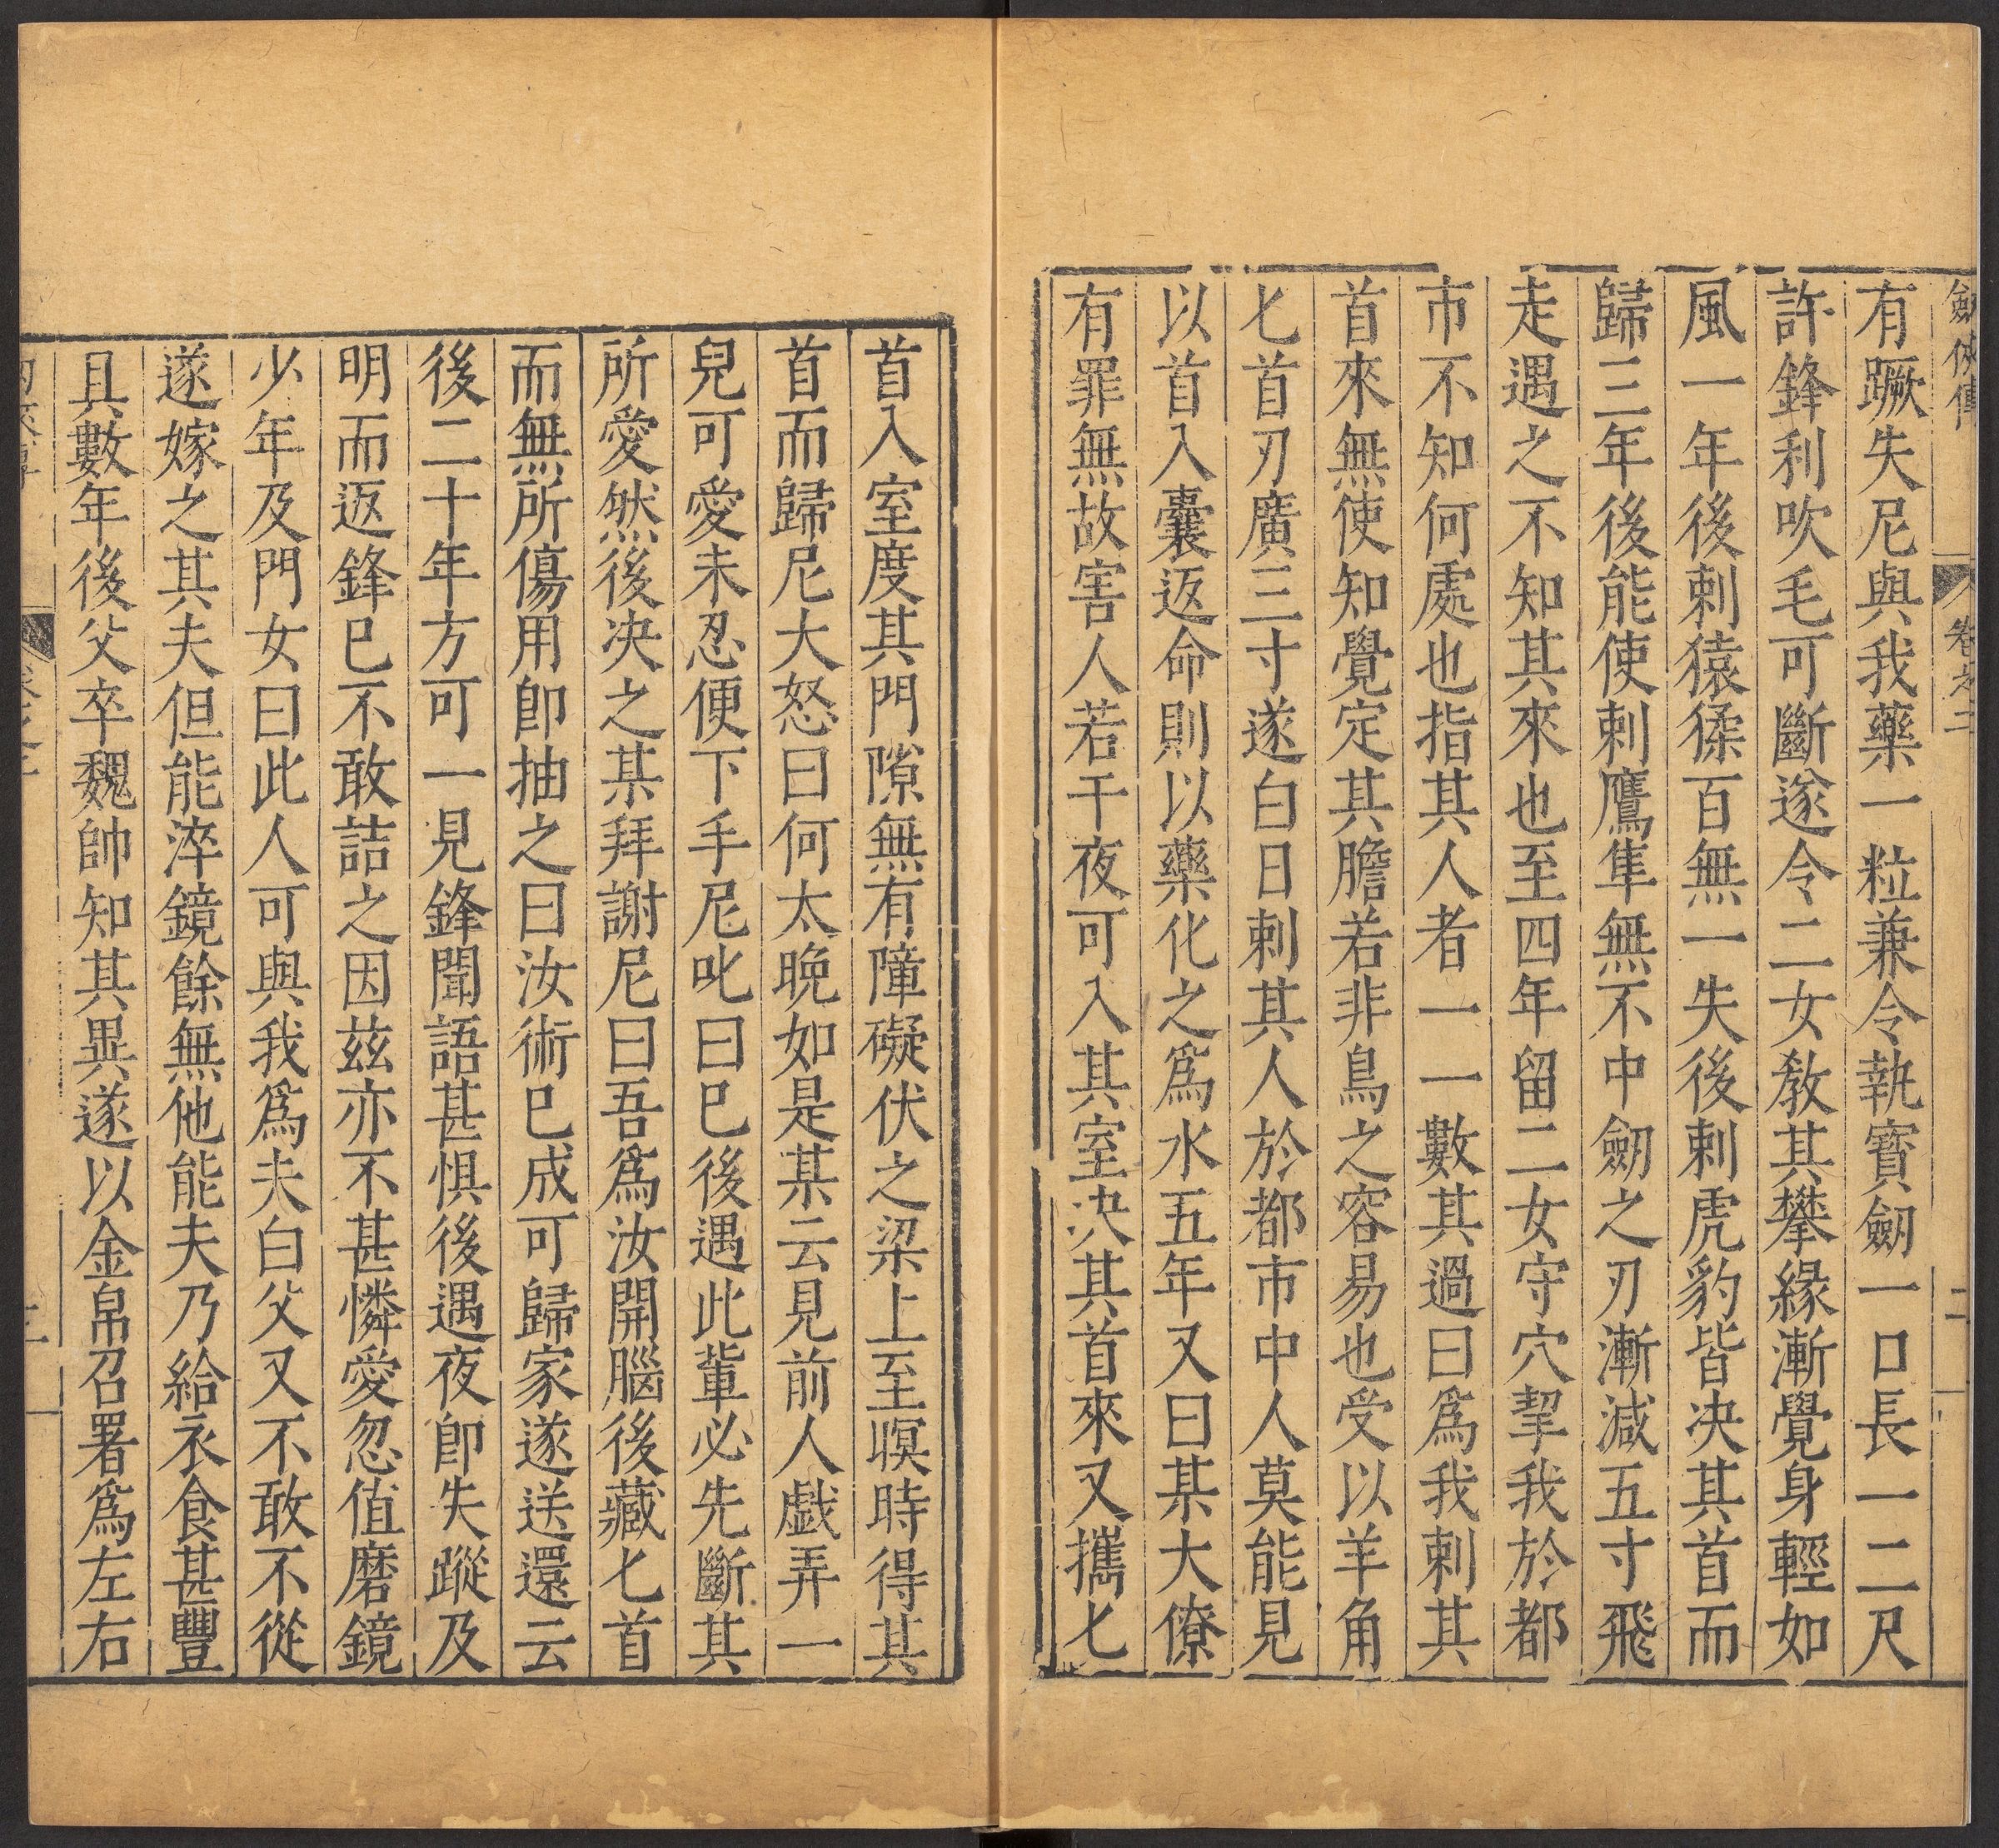 劒俠傳 卷之二 二
有蹶失尼與我藥一粒兼令執寳劒一口長一二尺
許鋒利吹毛可斷遂令二女敎其攀緣漸覺身輕如
風一年後刺猿猱百無一失後刺虎豹皆决其首而
歸三年後能使刺鷹隼無不中劒之刃漸減五寸飛
走遇之不知其來也至四年留二女守穴挈我於都
市不知何處也指其人者一一數其過曰爲我刺其
首來無使知覺定其膽若非鳥之容易也受以羊角
匕首刃廣三寸遂白日刺其人於都市中人莫能見
以首入囊返命則以藥化之爲水五年又曰某大僚
有罪無故害人若干夜可入其室决其首來又攜匕
首入室度其門隙無有障礙伏之梁上至暝時得其
首而歸尼大怒曰何太晚如是某云見前人戲弄一
兒可愛未忍便下手尼叱曰巳後遇此輩必先斷其
所愛然後决之某拜謝尼曰吾爲汝開腦後藏匕首
而無所傷用卽抽之曰汝術巳成可歸家遂送還云
後二十年方可一見鋒聞語甚惧後遇夜卽失蹤及
明而返鋒巳不敢詰之因兹亦不甚憐愛忽值磨鏡
少年及門女曰此人可與我爲夫白父又不敢不從
遂嫁之其夫但能淬鏡餘無他能夫乃給衣食甚豐
具數年後父卒魏帥知其異遂以金帛召署爲左右